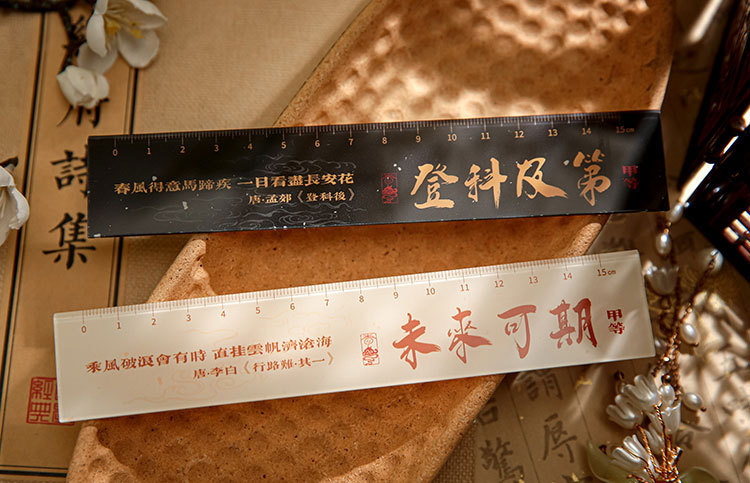 詩集
0 1 2 3 4 5 6 7 8 9 10 11 12 13 14 15cm
春風得意馬蹄疾 一日看盡長安花
唐·孟郊《登科後》
登科及第
甲等
0 1 2 3 4 5 6 7 8 9 10 11 12 13 14 15cm
乘風破浪會有時 直挂雲帆濟滄海
唐·李白《行路難·其一》
未來可期
甲等
請辱
驚